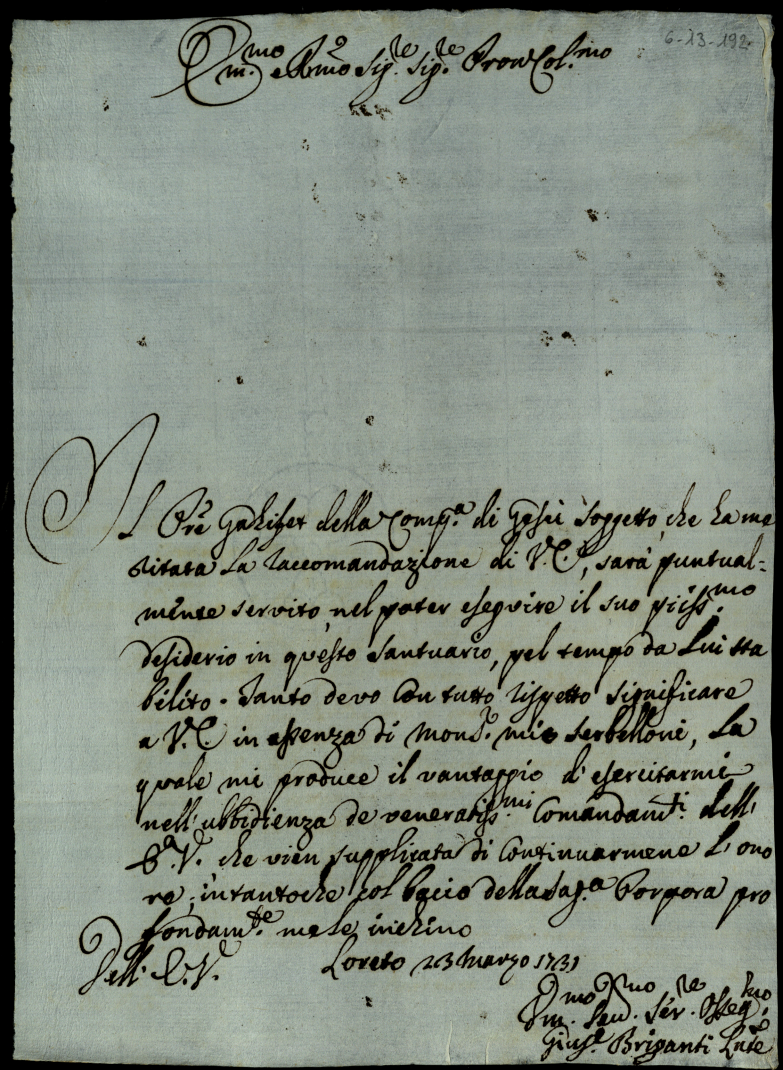 6-13-192
Em.mo e R.mo Sig.re Sig.re Pron Col.mo
Il Pre della Comp.a di Gesù soggetto, che ha me
ritata la raccomandazione di V.E., sarà puntual-
mente servito, nel poter eseguire il suo piiss.mo
desiderio in questo santuario, pel tempo da Lui sta
bilito. Tanto devo con tutto rispetto significare
a V.E. in assenza di Mons.r mio Serbelloni, la
quale mi produce il vantaggio d'esercitarmi
nell'ubbidienza de veneratiss.mi Comandam.ti dell'
E.V. che vien supplicata di continuarmene l'ono
re, intantoche col bacio della Sag.a Porpora pro
fondam.te me le inchino
Dell'E.V. Loreto 23 Marzo 1731
Um.mo Dev.mo Ser.re Osseq.mo
Gius.e Briganti Lute